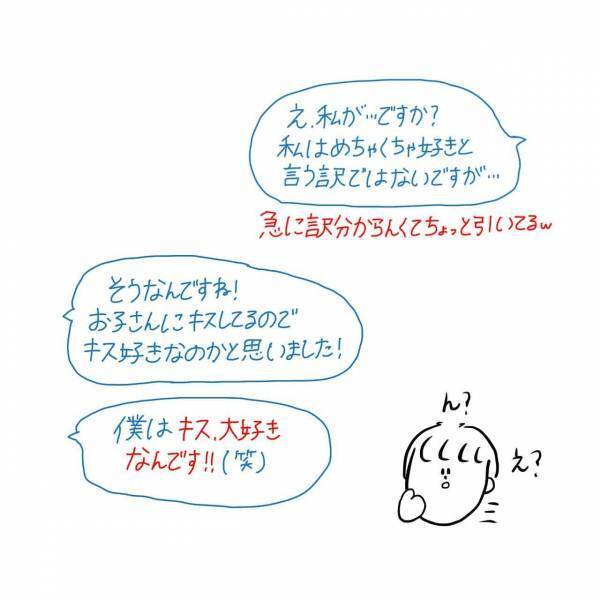 え、私が…ですか?
私はめちゃくちゃ好きと
言う訳ではないですが…
急に訳分からんくてちょっと引いてるw
そうなんですね!
お子さんにキスしてるので
キス好きなのかと思いました!
僕はキス、大好き
なんです!!(笑)
ん?
え?